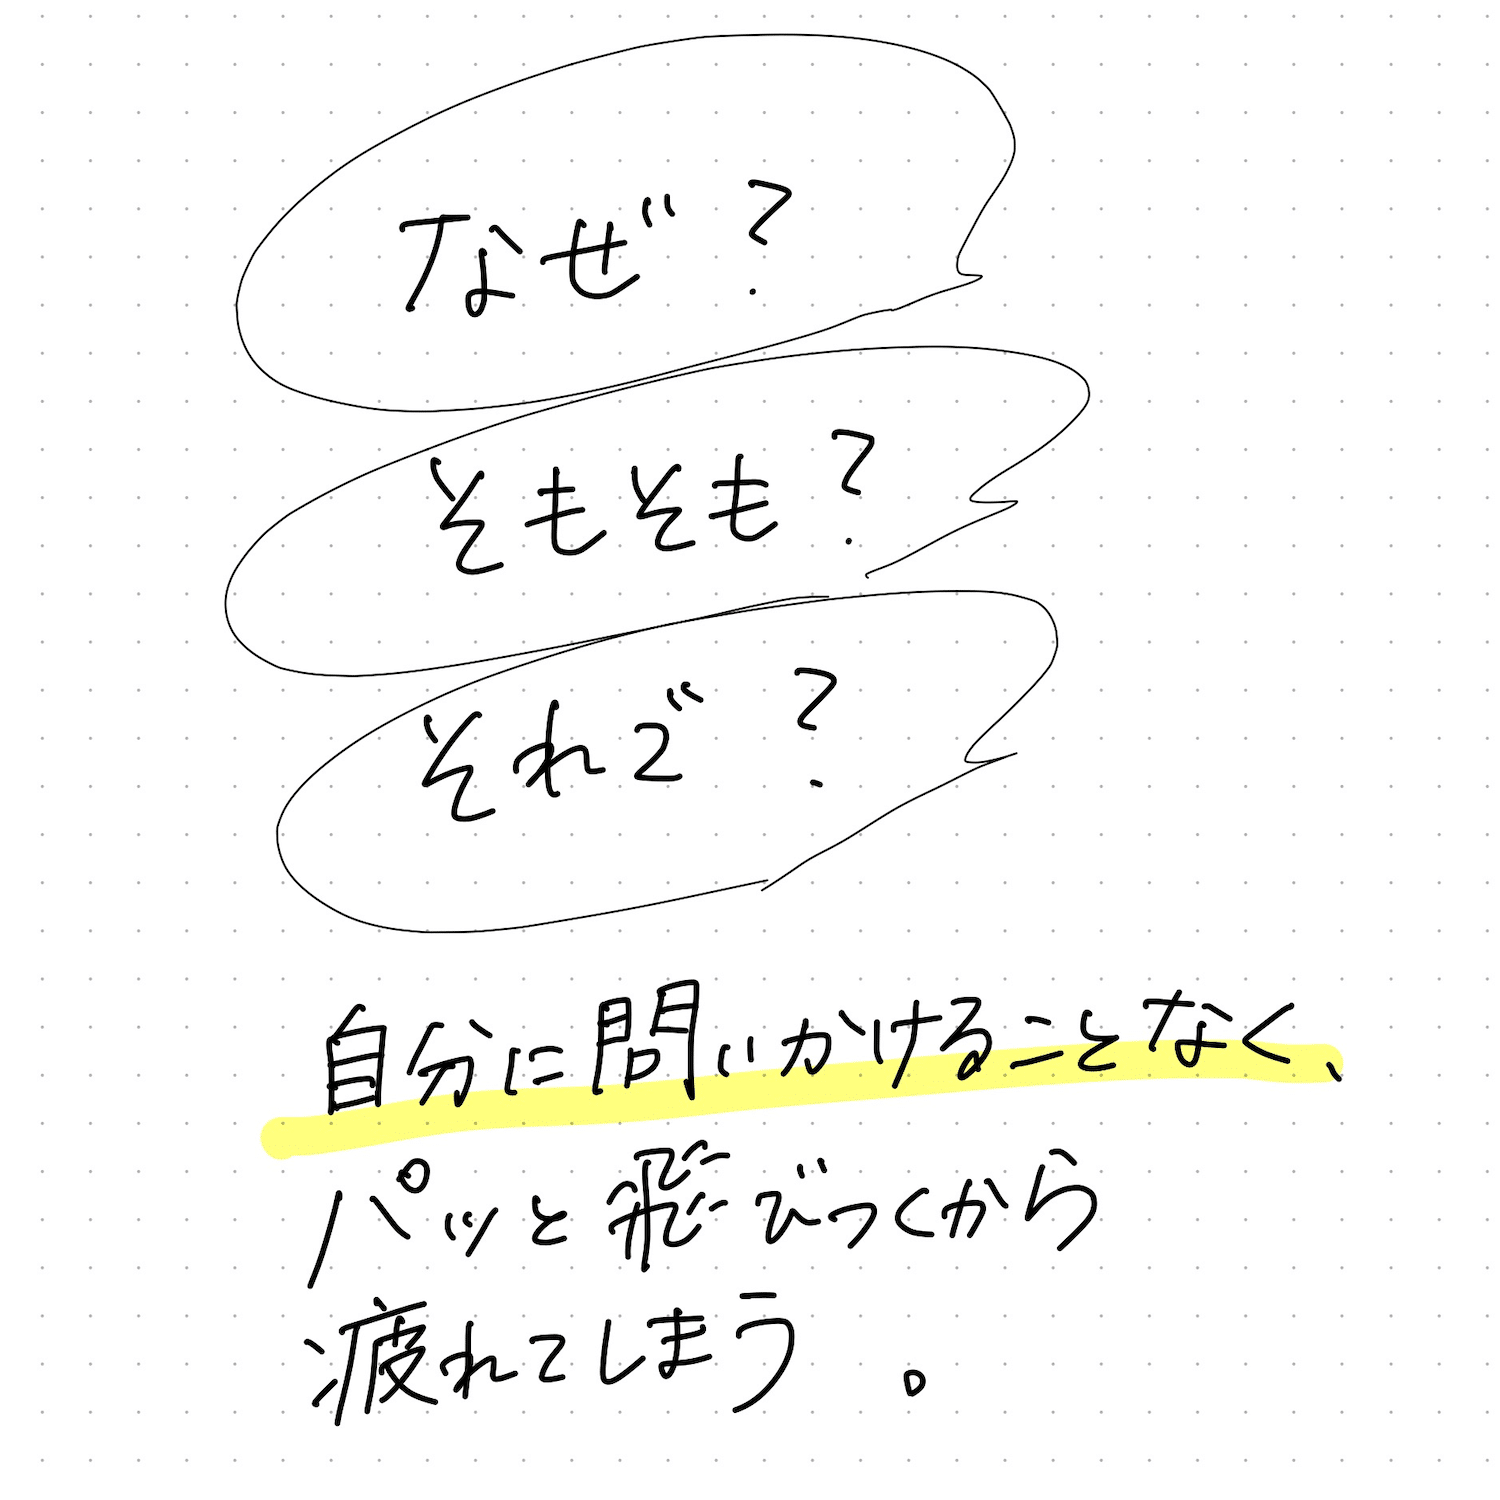 なぜ?
そもそも?
それで?
自分に問いかけることなく、
パッと飛びつくから
疲れてしまう。